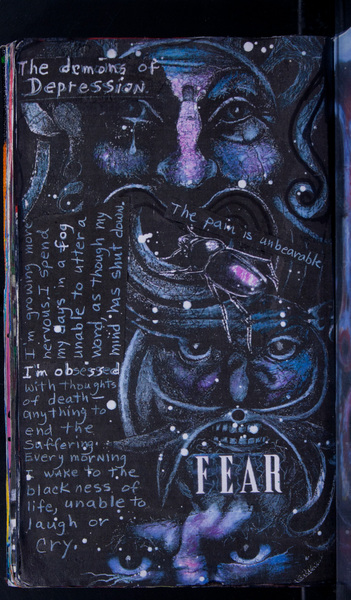 The demons of
Depression.
The pain is unbearable
I'm growing more
nervous. I spend
my days in a fog
unable to utter a
word as though my
mind has shut down.
I'm obsessed
with thoughts
of death—
anything to
end the
suffering.
Every morning
I wake to the
blackness of
life, unable to
laugh or
cry.
FEAR